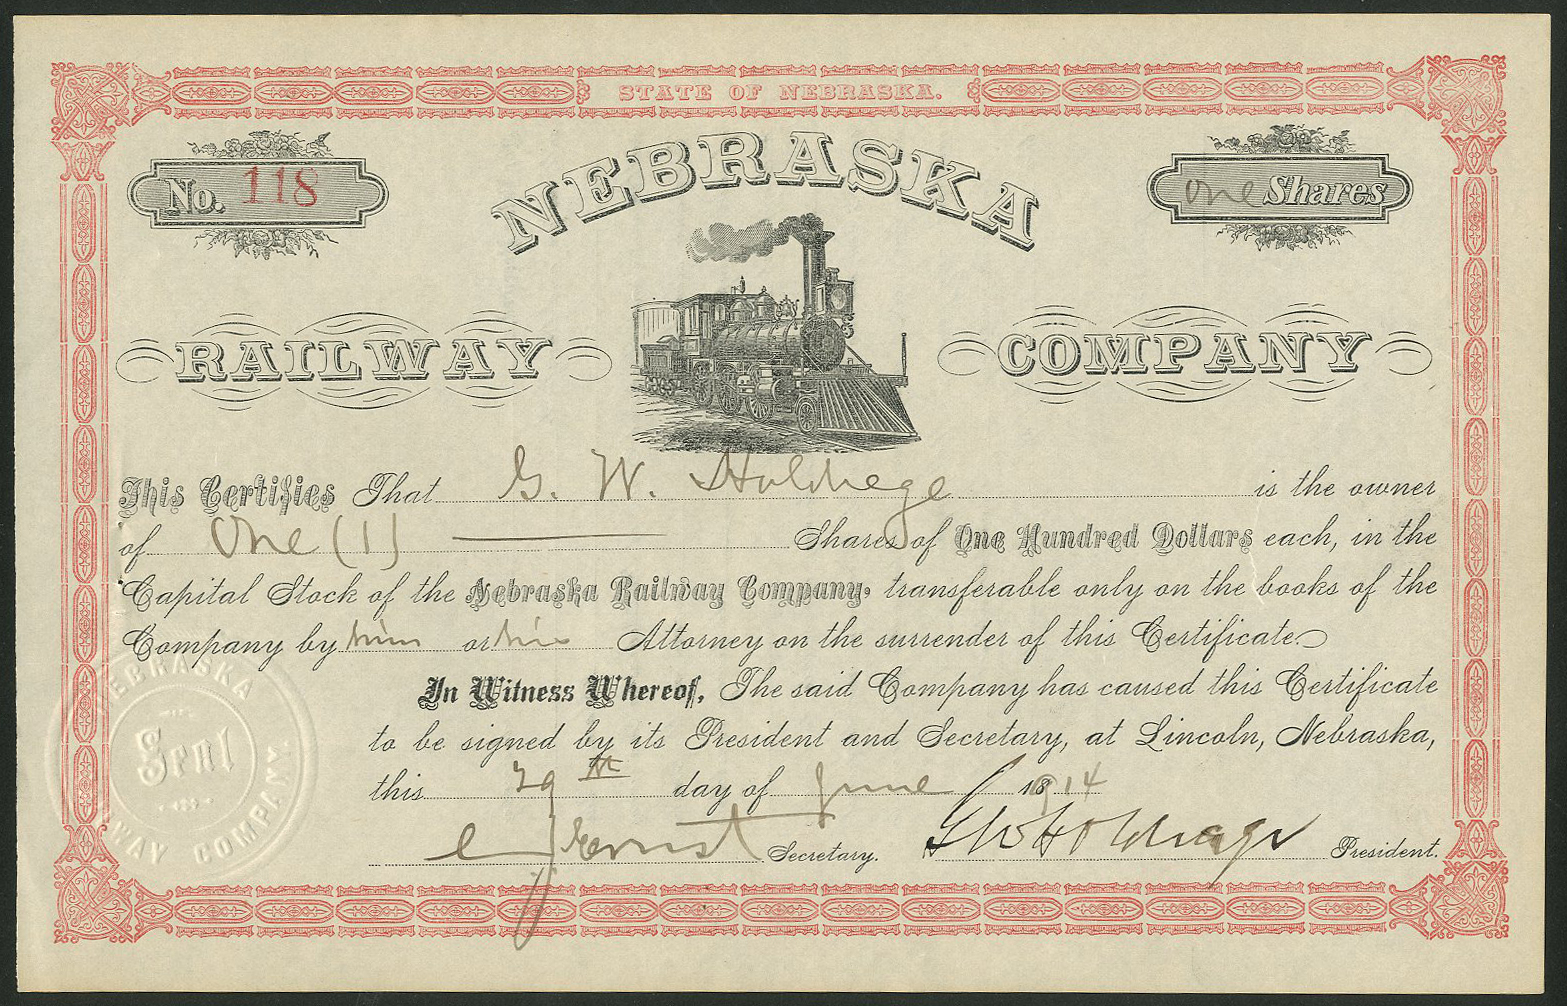 STATE OF NEBRASKA.
No. 118
NEBRASKA
one Shares
RAILWAY COMPANY
This Certifies That G. W. Holdrege is the owner
of One (1) Shares of One Hundred Dollars each, in the
Capital Stock of the Nebraska Railway Company, transferable only on the books of the
Company by him or his Attorney on the surrender of this Certificate.
In Witness Whereof, The said Company has caused this Certificate
to be signed by its President and Secretary, at Lincoln, Nebraska,
this 29th day of June 1914
C J Ernst Secretary. G W Holdrege President.
NEBRASKA
Seal
WAY COMPANY